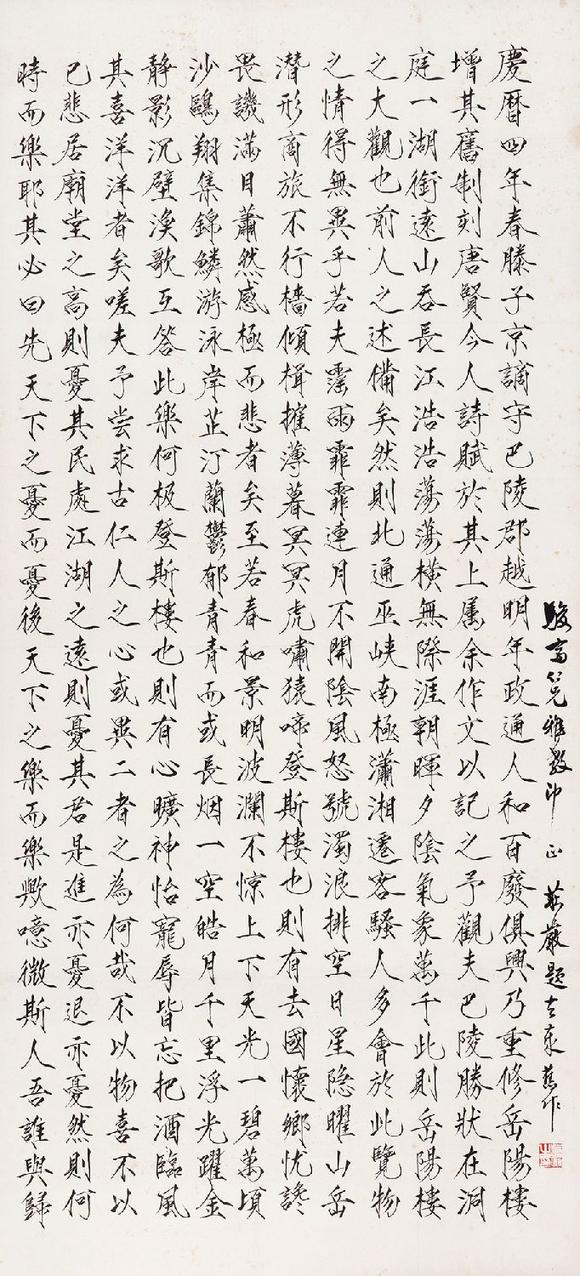 仁兄雅教即正 莊嚴題
慶曆四年春滕子京謫守巴陵郡越明年政通人和百廢俱興乃重修岳陽樓
增其舊制刻唐賢今人詩賦於其上属余作文以記之予觀夫巴陵勝狀在洞
庭一湖銜遠山吞長江浩浩蕩蕩橫無際涯朝暉夕陰氣象萬千此則岳陽樓
之大觀也前人之述備矣然則北通巫峽南極瀟湘遷客騷人多會於此覽物
之情得無異乎若夫霪雨霏霏連月不開陰風怒號濁浪排空日星隐曜山岳
潛形商旅不行檣傾楫摧薄暮冥冥虎嘯猿啼登斯樓也則有去國懷鄉忧讒
畏譏滿目蕭然感極而悲者矣至若春和景明波瀾不惊上下天光一碧萬頃
沙鷗翔集錦鱗游泳岸芷汀蘭鬱郁青青而或長烟一空皓月千里浮光躍金
静影沉壁漁歌互答此樂何极登斯樓也則有心曠神怡寵辱皆忘把酒臨風
其喜洋洋者矣嗟夫予尝求古仁人之心或異二者之為何哉不以物喜不以
己悲居廟堂之高則憂其民處江湖之遠則憂其君是進亦憂退亦憂然則何
時而樂耶其必曰先天下之憂而憂後天下之樂而樂歟噫微斯人吾誰與歸